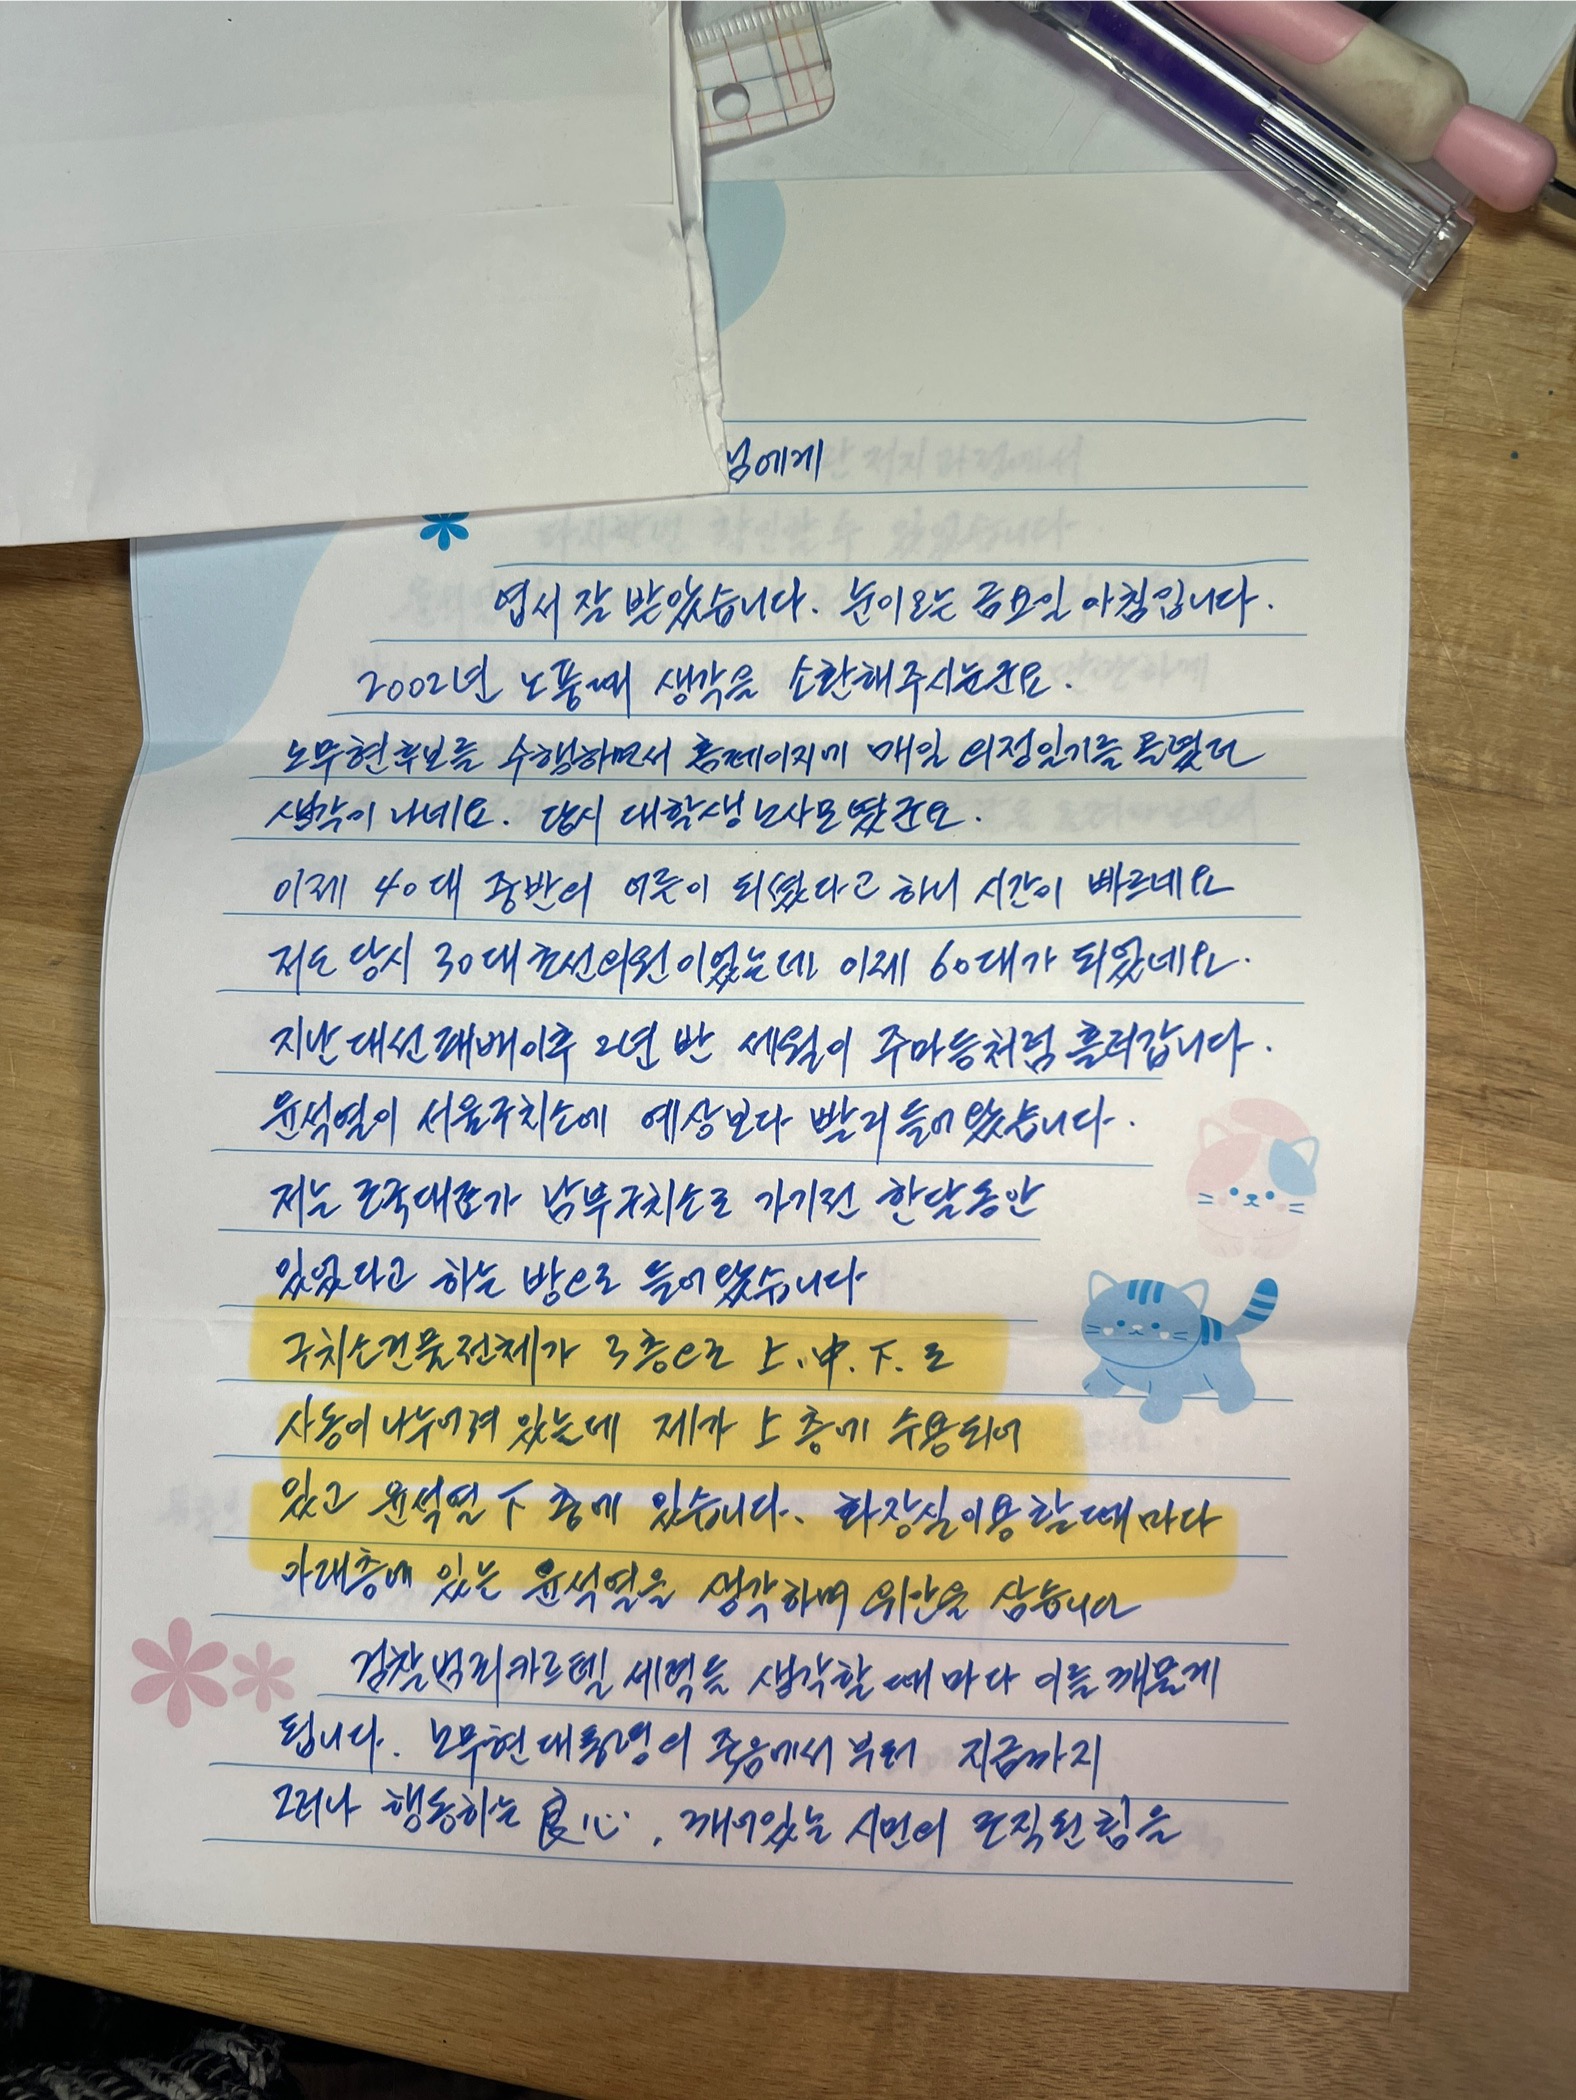 님에게
엽서 잘 받았습니다. 눈이오는 금요일 아침입니다.
2002년 노풍때 생각을 소환해주시는군요.
노무현후보를 수행하면서 홈페이지에 매일 의정일기를 올렸던
생각이 나네요. 당시 대학생 노사모였군요.
이제 40대 중반의 어른이 되셨다고 하니 시간이 빠르네요
저도 당시 30대 초선의원이었는데 이제 60대가 되었네요.
지난 대선패배이후 2년 반 세월이 주마등처럼 흘러갑니다.
윤석열이 서울구치소에 예상보다 빨리 들어왔습니다.
저는 조국대표가 남부구치소로 가기전 한달동안
있었다고 하는 방으로 들어왔습니다
구치소건물전체가 3층으로 上.中.下.로
사동이 나누어져 있는데 제가 上층에 수용되어
있고 윤석열 下층에 있습니다. 화장실이용할때마다
아래층에 있는 윤석열을 생각하며 위안을 삼습니다
검찰범죄카르텔 세력을 생각할 때마다 이를 깨물게
됩니다. 노무현대통령의 죽음에서부터 지금까지
그러나 행동하는 良心, 깨어있는 시민의 조직된힘을